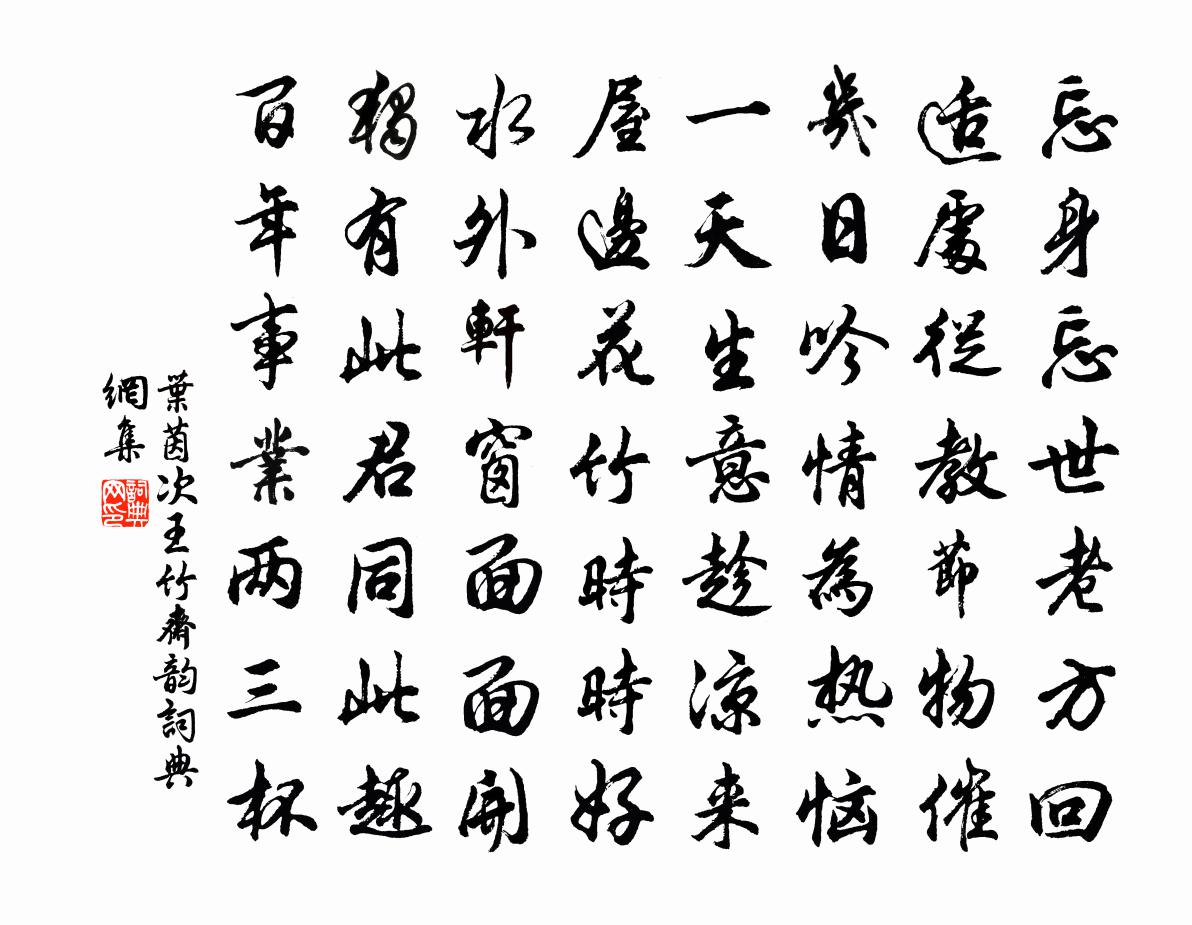 忘身忘世老方回
适處從教節物催
幾日吟情為热恼
一天生意趁凉来
屋邊花竹時時好
水外軒窗面面開
獨有此君同此趣
百年事業两三杯
葉茵次王竹齋韵詞典
網集
詞典
网印